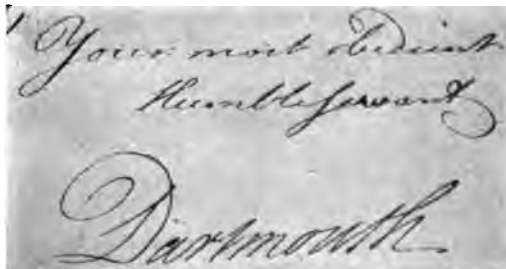 Your most obedient
Humble Servant
Dartmouth